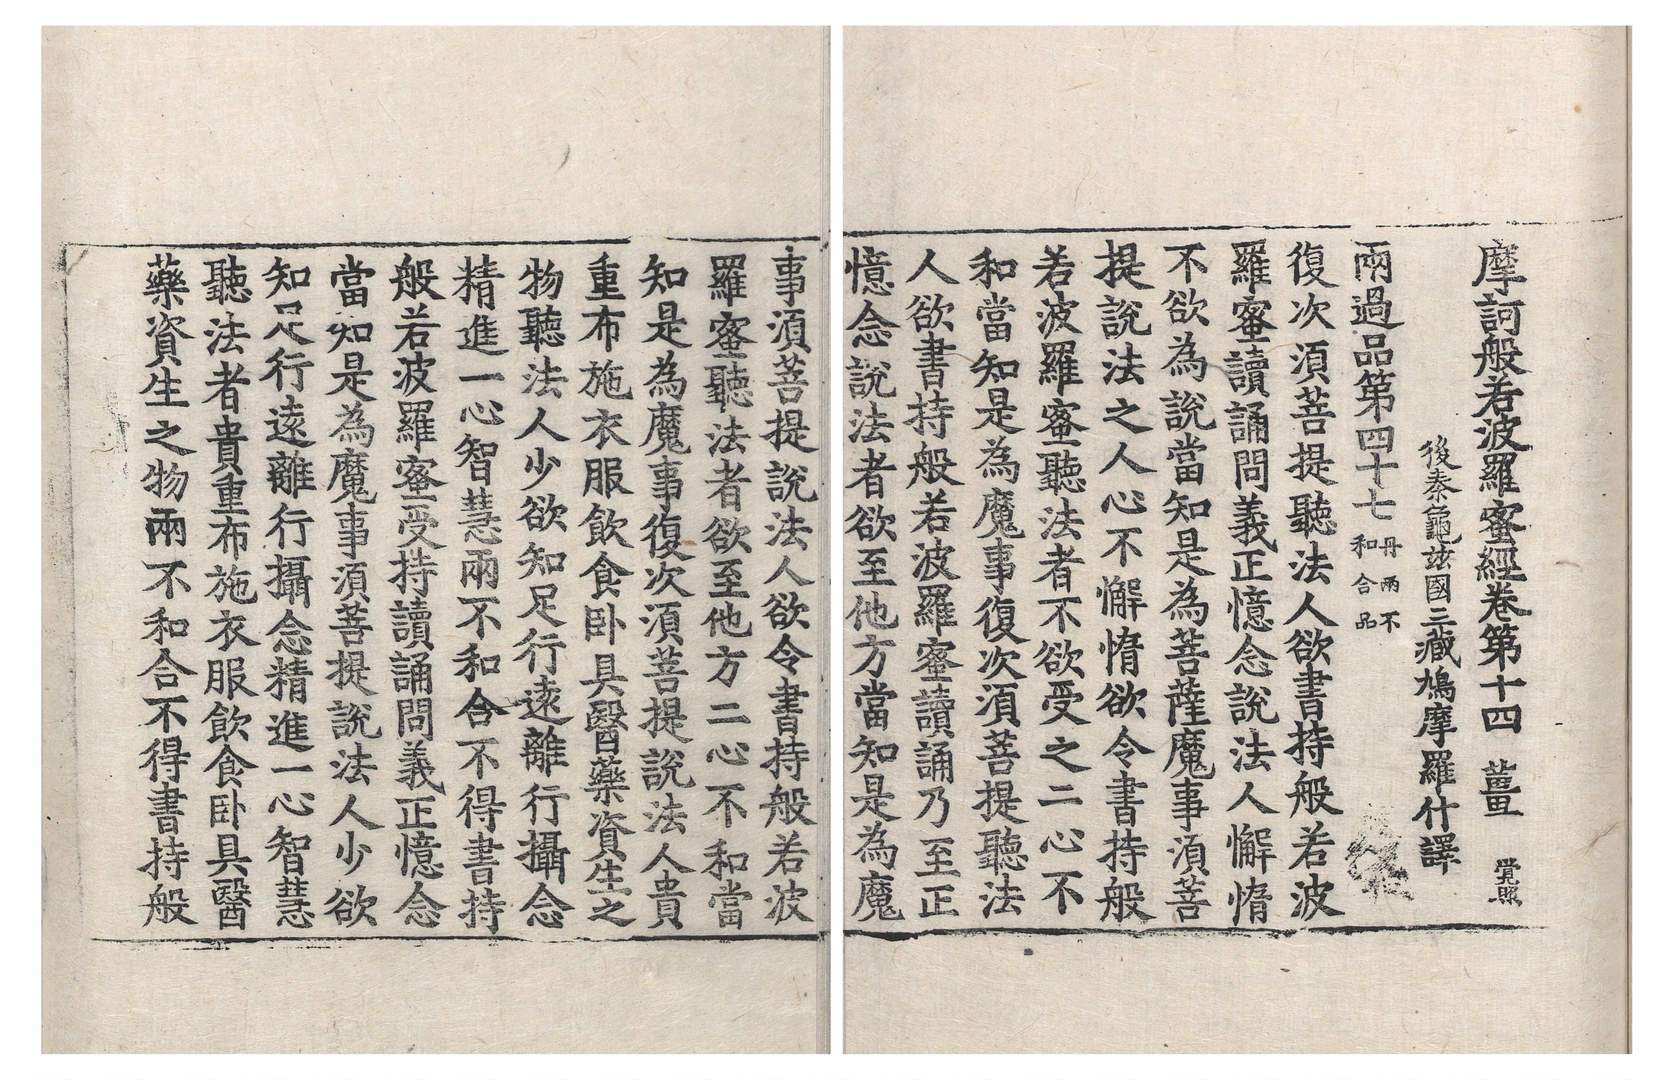 摩訶般若波羅蜜經卷第十四 薑 覺照
後秦龜玆國三藏鳩摩羅什譯
兩過品第四十七 丹兩不和合品
復次須菩提聽法人欲書持般若波
羅蜜讀誦問義正憶念說法人懈惰
不欲為說當知是為菩薩魔事須菩
提說法之人心不懈惰欲令書持般
若波羅蜜聽法者不欲受之二心不
和當知是為魔事復次須菩提聽法
人欲書持般若波羅蜜讀誦乃至正
憶念說法者欲至他方當知是為魔
事須菩提說法人欲令書持般若波
羅蜜聽法者欲至他方二心不和當
知是為魔事復次須菩提說法人貴
重布施衣服飲食卧具醫藥資生之
物聽法人少欲知足行遠離行攝念
精進一心智慧兩不和合不得書持
般若波羅蜜受持讀誦問義正憶念
當知是為魔事須菩提說法人少欲
知足行遠離行攝念精進一心智慧
聽法者貴重布施衣服飲食卧具醫
藥資生之物兩不和合不得書持般